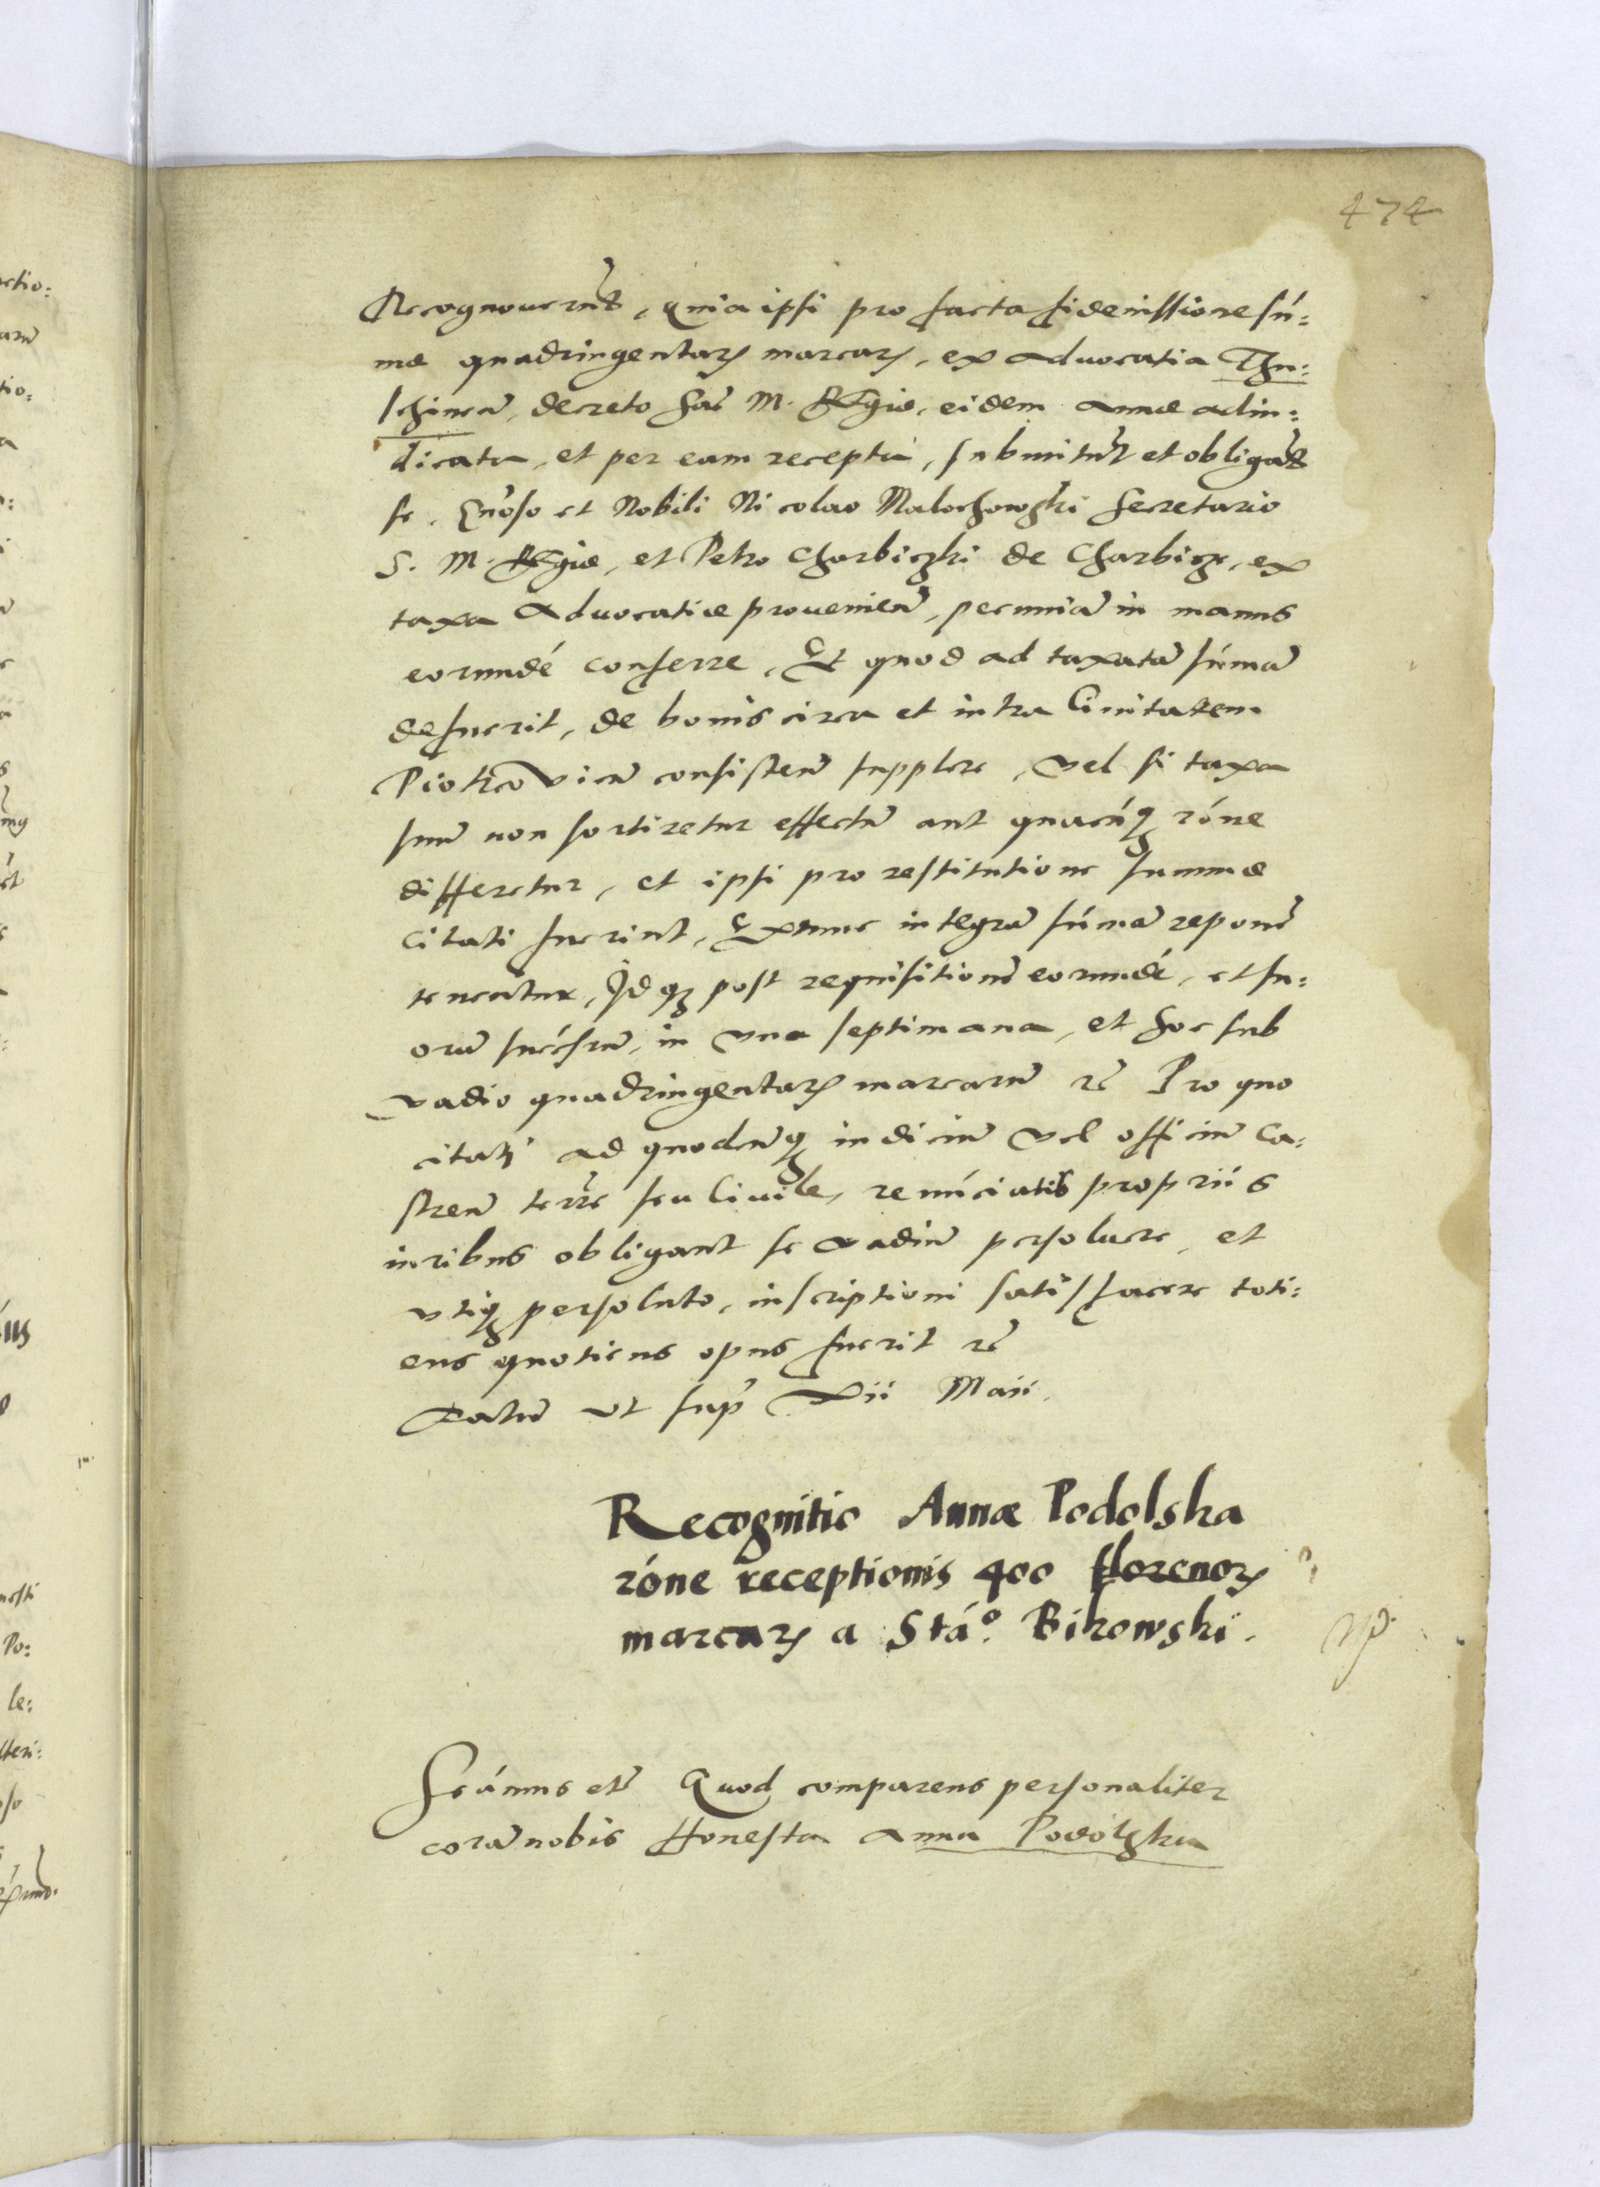 474
Recognouerũt, Quia ipsi pro facta fideiussione sũ:
mæ quadringentarꝫ marcarꝫ, ex aduocatia Thu:
schinen̄, decreto Sac̄ M. Regiæ, eidem annæ adiu:
dicata, et per eam receptũ, submitũt et obligãt
se, Gñoso et Nobili Nicolao Malochowski Secretario
S. M. Regiæ, et Petro Charbiczki de Charbicze, ex
taxa Aduocatiæ prouenien̄, pecuniã in manus
eorundẽ conferre, Et quod ad taxatã sũmã
defuerit, de bonis circa et intra Ciuitatem
Piotrcouien̄ consisten̄ supplere, vel si taxa
suũ non sortiretur effectũ aut quacũqꝫ rõne
differetur, et ipsi pro restitutione summæ
citati fuerint, Extunc integrã sũmã reponẽ
teneãtur, Idqꝫ post requisitionẽ eorundẽ, et su:
orũ succẽsorũ, in vna septimana, et hoc sub
vadio quadringentarꝫ marcarũ rc̄ Pro quo
citati ad quodcũqꝫ iudiciũ vel officiũ Ca:
stren̄ terre seu Ciuile, renũciatis propriis
iuribus obligant se vadiũ persoluere, et
vtiqꝫ persoluto, inscriptioni satisfacere toti:
ens quotiens opus fuerit rc̄
Datũ vt supͣ Xii Maii.
Recognitio Annæ Podolska
rõne receptionis 400 florenorꝫ
marcarꝫ a Stã⁰. Bikowski.
Feãmus etc̄ Quod comparens personaliter
corã nobis Honesta anna Podolska